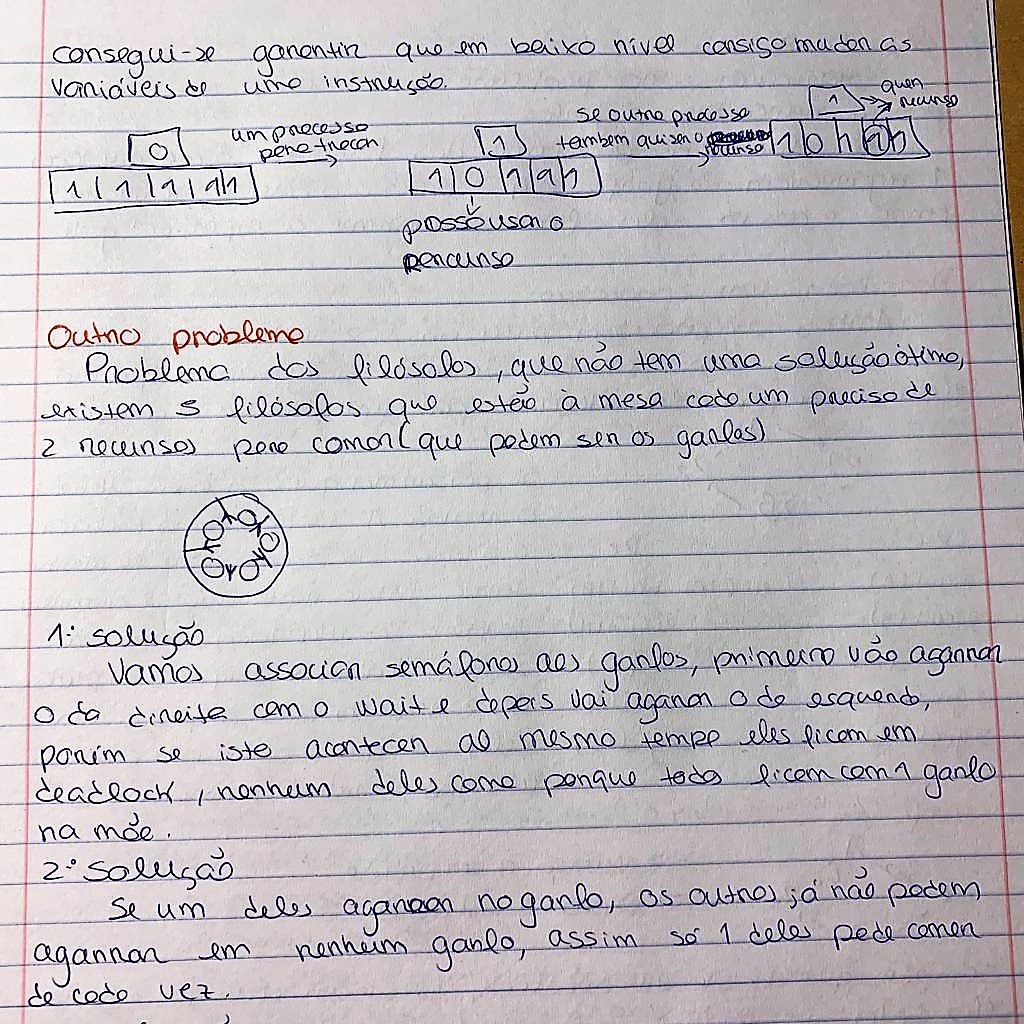 consegui-se garantir que em baixo nível consigo mudar as
variáveis de uma instrução.
0
um processo
para trocar
1 | 1 | 1 | 1 | 1
1
1 | 0 | 1 | 1 | 1
posso usar o
recurso
se outro processo
também quiser o recurso
1
quer
recurso
1 0 1 1 1
Outro problema
Problema dos filósofos, que não tem uma solução ótima,
existem 5 filósofos que estão à mesa cada um precisa de
2 recursos para comer (que podem ser os garfos)
1ª solução
Vamos associar semáforos aos garfos, primeiro vão agarrar
o da direita com o wait e depois vai agarar o da esquerda,
porém se isto acontecer ao mesmo tempo eles ficam em
deadlock, nenhum deles come porque todos ficam com 1 garfo
na mão.
2ª solução
Se um deles agarar no garfo, os outros já não podem
agarrar em nenhum garfo, assim só 1 deles pode comer
de cada vez.